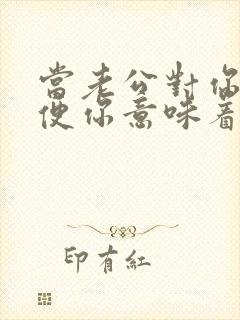 當老公對你
使你意味着
印有紅